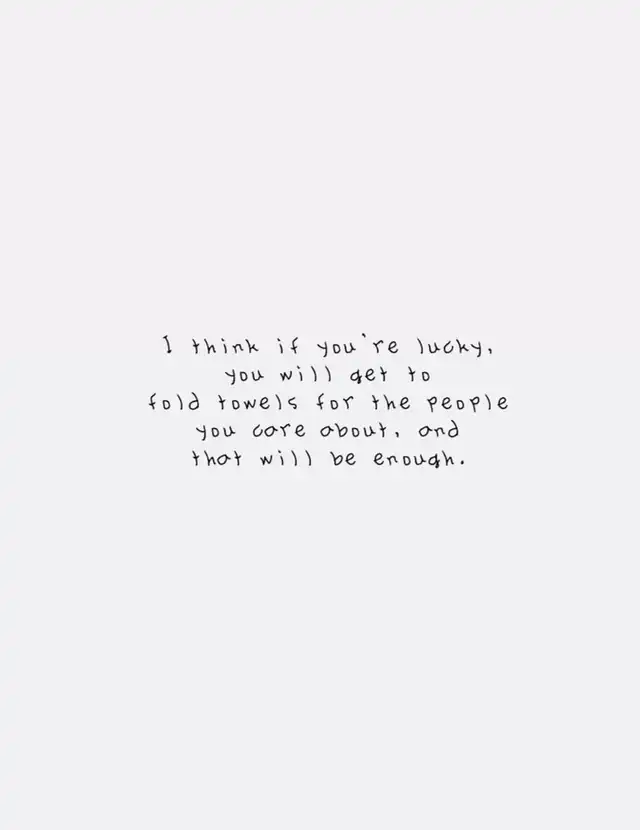 I think if you're lucky,
you will get to
fold towels for the people
you care about, and
that will be enough.